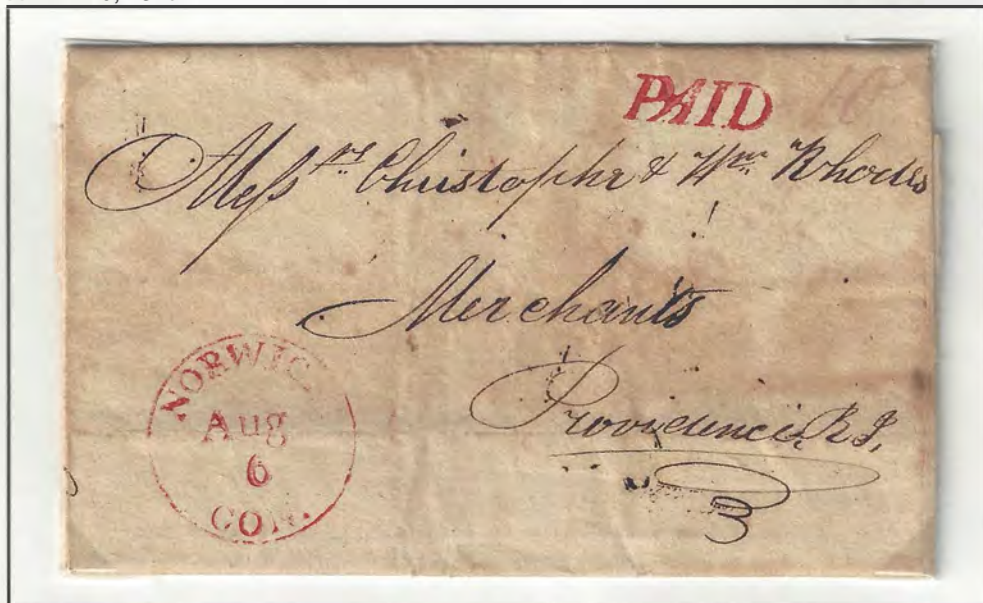 PAID 10
Mess.rs Christopher & Wm Rhodes
Merchants
Providence, R I,
NORWIC
Aug
6
CON.